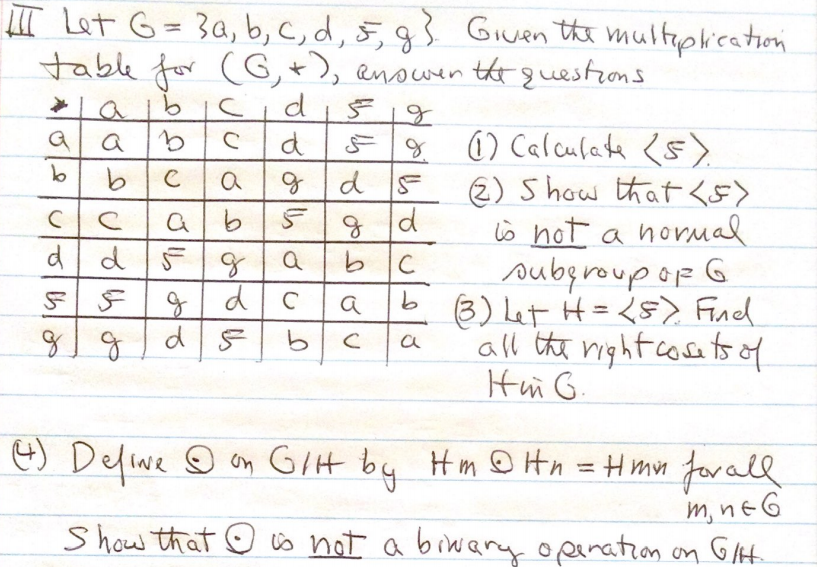 III Let G = {a, b, c, d, f, g}. Given the multiplication
table for (G, *), answer the questions
* a b c d f g
a a b c d f g
b b c a g d f
c c a b f g d
d d f g a b c
f f g d c a b
g g d f b c a
(1) Calculate <f>.
(2) Show that <f>
is not a normal
subgroup of G
(3) Let H = <f>. Find
all the right cosets of
H in G.
(4) Define ⊙ on G/H by Hm ⊙ Hn = Hmn for all
m, n ∈ G
Show that ⊙ is not a binary operation on G/H.